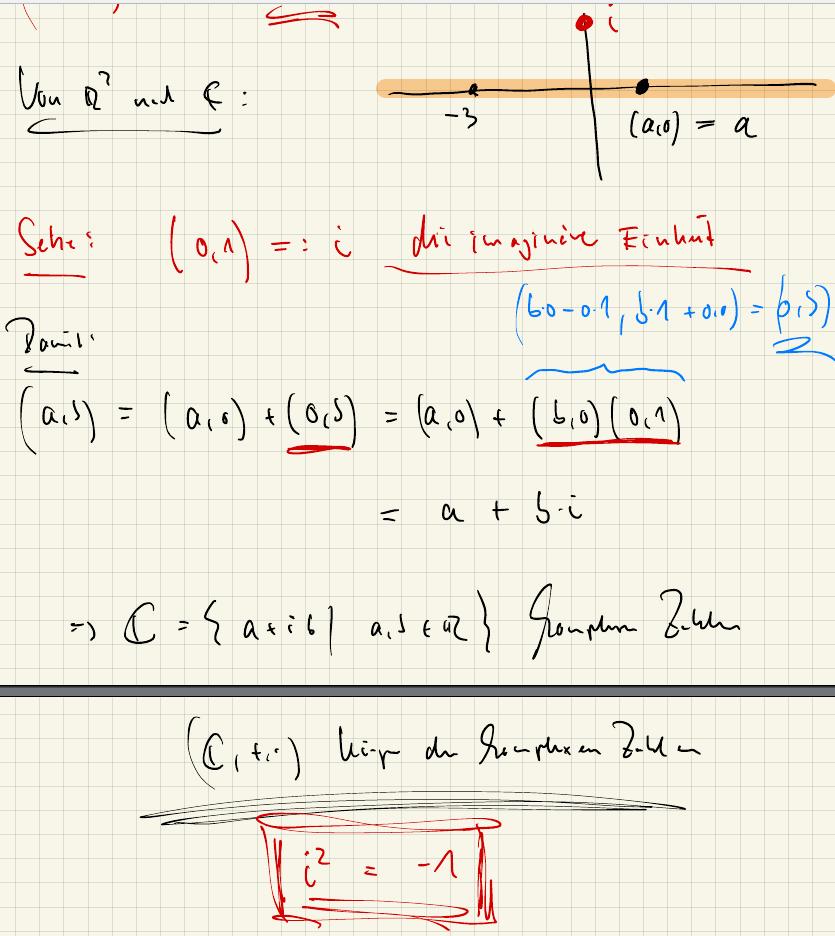 i
Von ℝ² nach ℂ :
-3
(a,0) = a
Setze: (0,1) =: i die imaginäre Einheit
(b·0 - 0·1, b·1 + 0·0) = (0,b)
Damit:
(a,b) = (a,0) + (0,b) = (a,0) + (b,0)(0,1)
= a + b·i
=> ℂ = { a + i b | a,b ∈ ℝ } Komplexe Zahlen
(ℂ, +, ·) Körper der Komplexen Zahlen
i² = -1